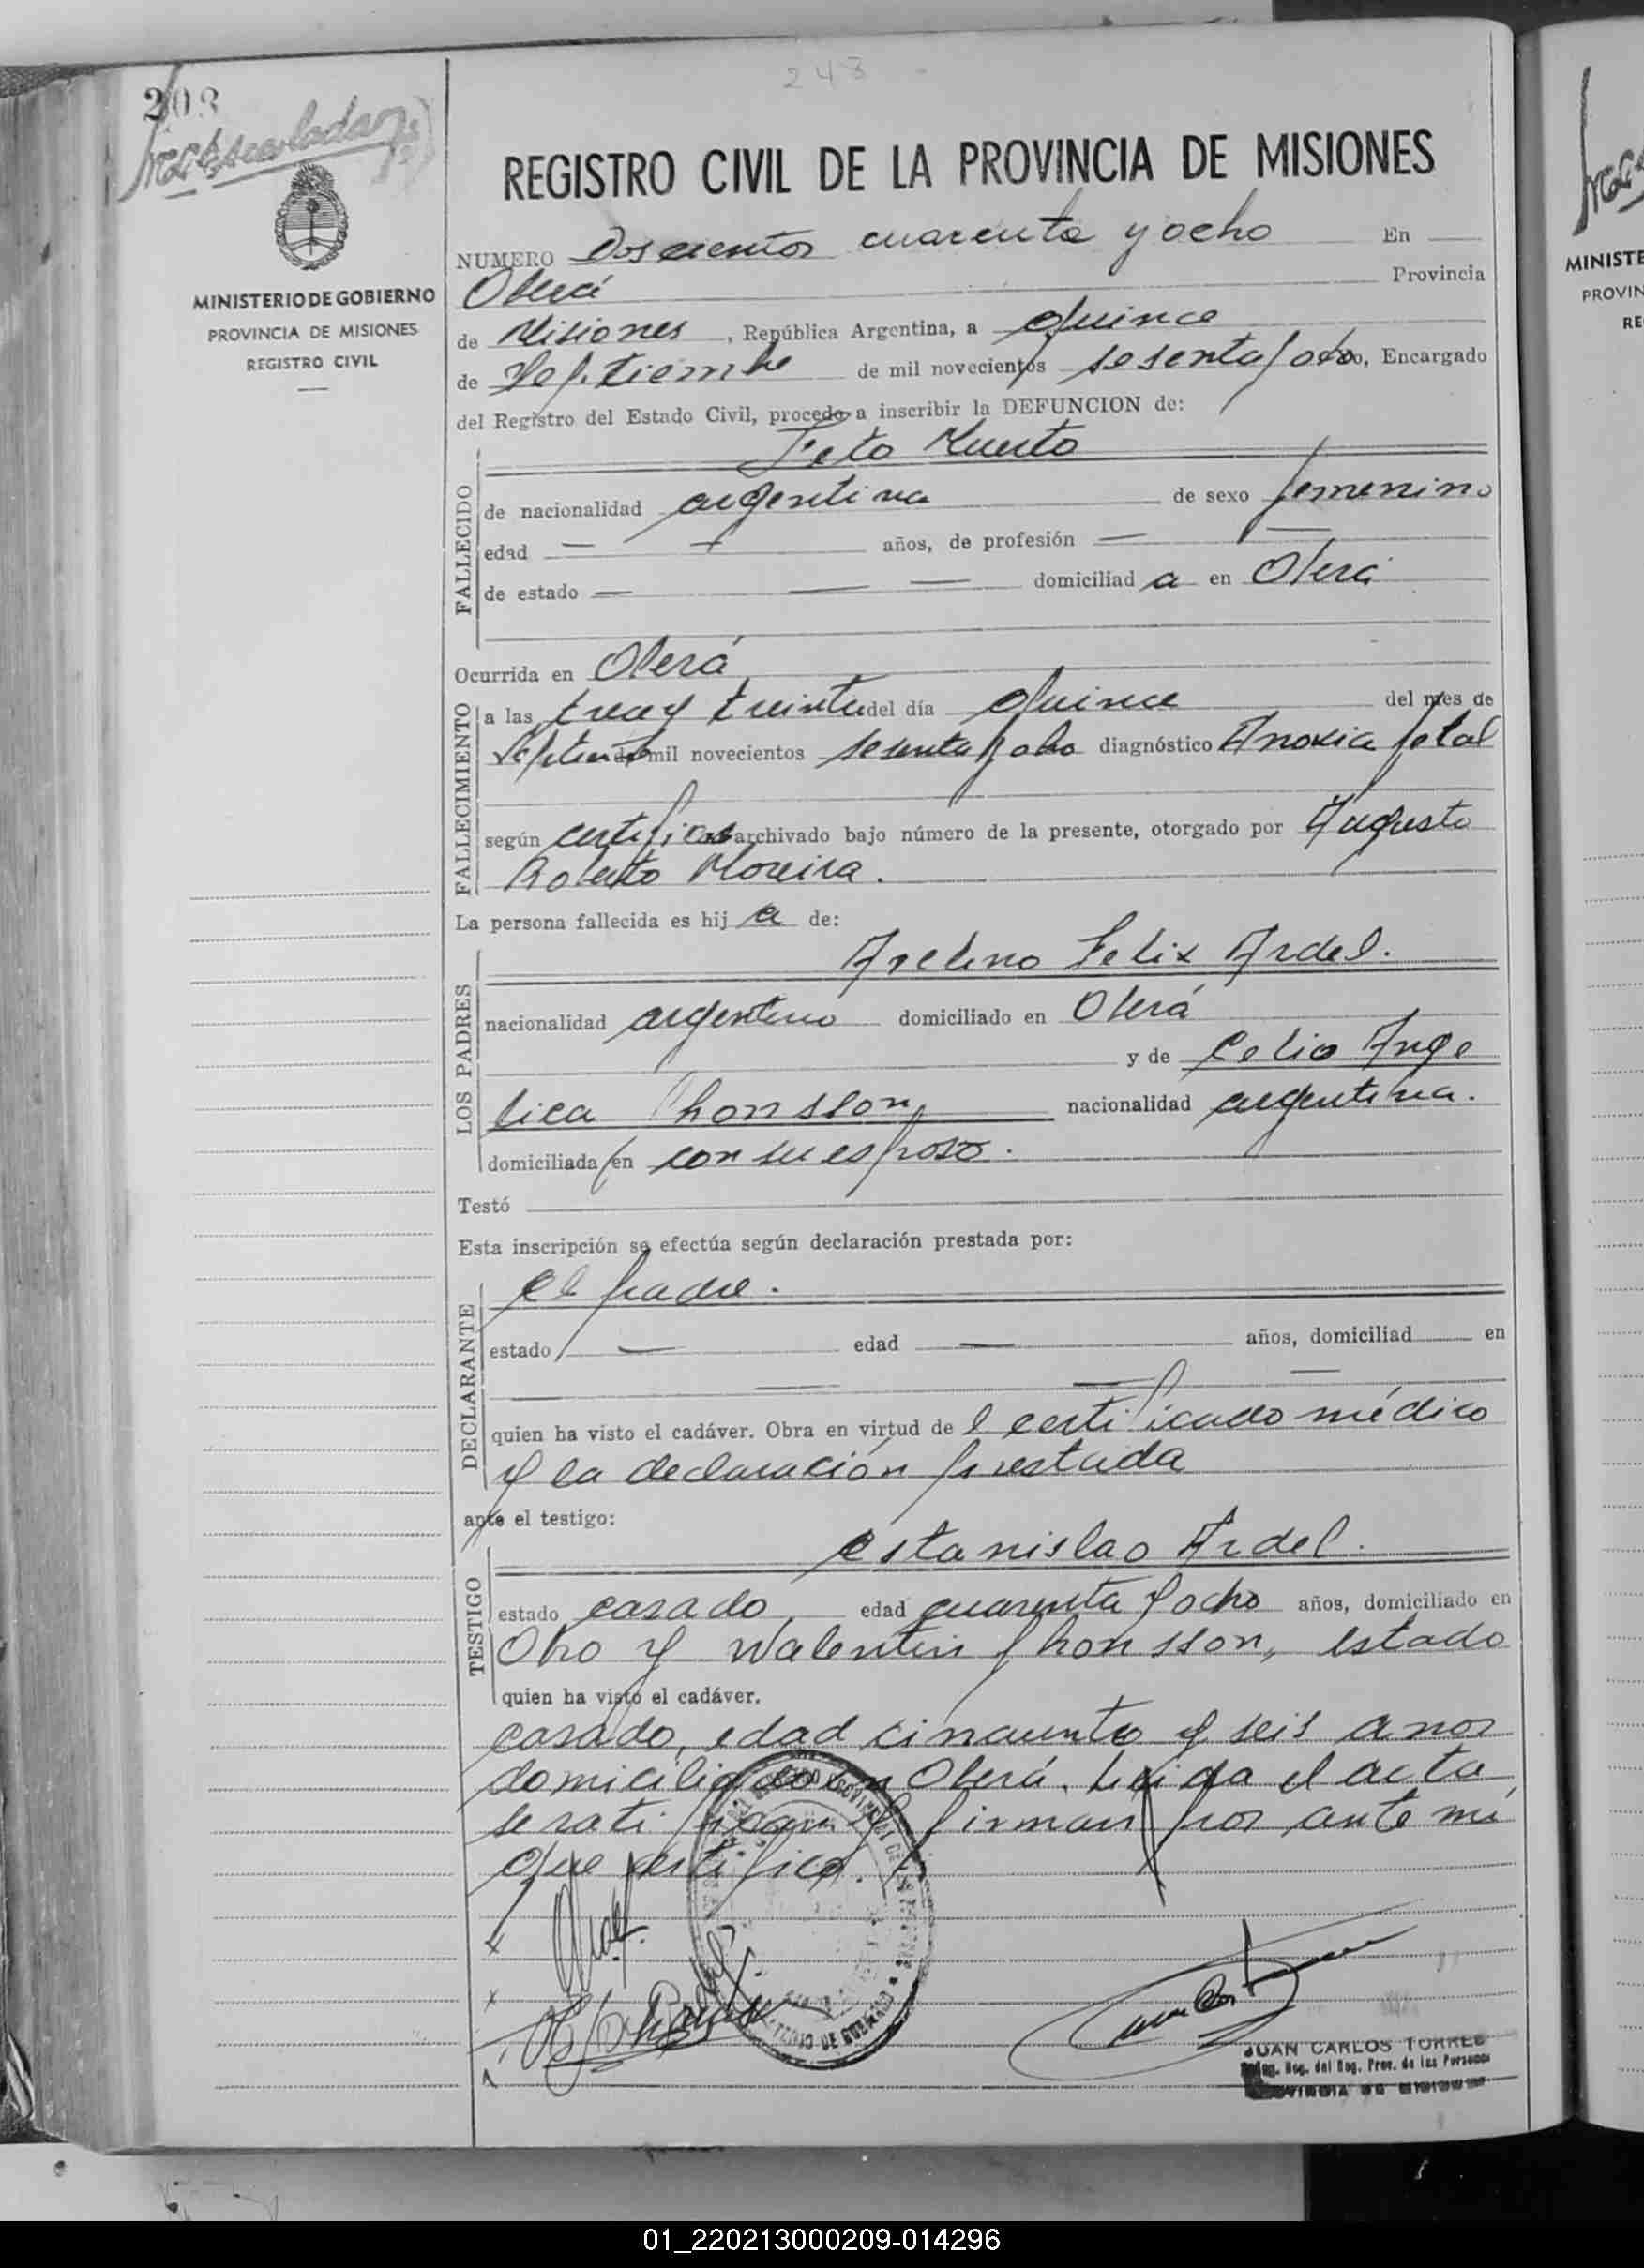 248
208
REGISTRO CIVIL DE LA PROVINCIA DE MISIONES
MINISTERIO DE GOBIERNO
PROVINCIA DE MISIONES
REGISTRO CIVIL
NUMERO Doscientos cuarenta y ocho En
Oberá Provincia
de Misiones, República Argentina, a quince
de Septiembre de mil novecientos sesenta y ocho, Encargado
del Registro del Estado Civil, procedo a inscribir la DEFUNCION de:
Feto Muerto
FALLECIDO
de nacionalidad argentina de sexo femenino
edad — — años, de profesión — —
de estado — — — domiciliad a en Oberá
Ocurrida en Oberá
FALLECIMIENTO
a las tres y treinta del día quince del mes de
Septiembre de mil novecientos sesenta y ocho diagnóstico Anoxia fetal
según certificado archivado bajo número de la presente, otorgado por Augusto
Roberto Moreira.
La persona fallecida es hij a de:
LOS PADRES
Avelino Felix Ardel.
nacionalidad argentino domiciliado en Oberá
y de Celia Ange
lica Thonsson, nacionalidad argentina.
domiciliada en con su esposo.
Testó
Esta inscripción se efectúa según declaración prestada por:
DECLARANTE
el padre.
estado — edad — años, domiciliad en
— — —
quien ha visto el cadáver. Obra en virtud de l certificado médico
y la declaración prestada
ante el testigo:
TESTIGO
Estanislao Ardel.
estado casado, edad cuarenta y ocho años, domiciliado en
y Walentin Thonsson, estado
quien ha visto el cadáver.
casado, edad cincuenta y seis anos
domiciliado en Oberá. Leida el acta
se ratifican y firman por ante mi
que certifico.
MINISTERIO DE GOBIERNO
JUAN CARLOS TORRES
del Reg. Prov. de las Personas
PROVINCIA DE MISIONES
MINISTE
PROVIN
RE
01_220213000209-014296